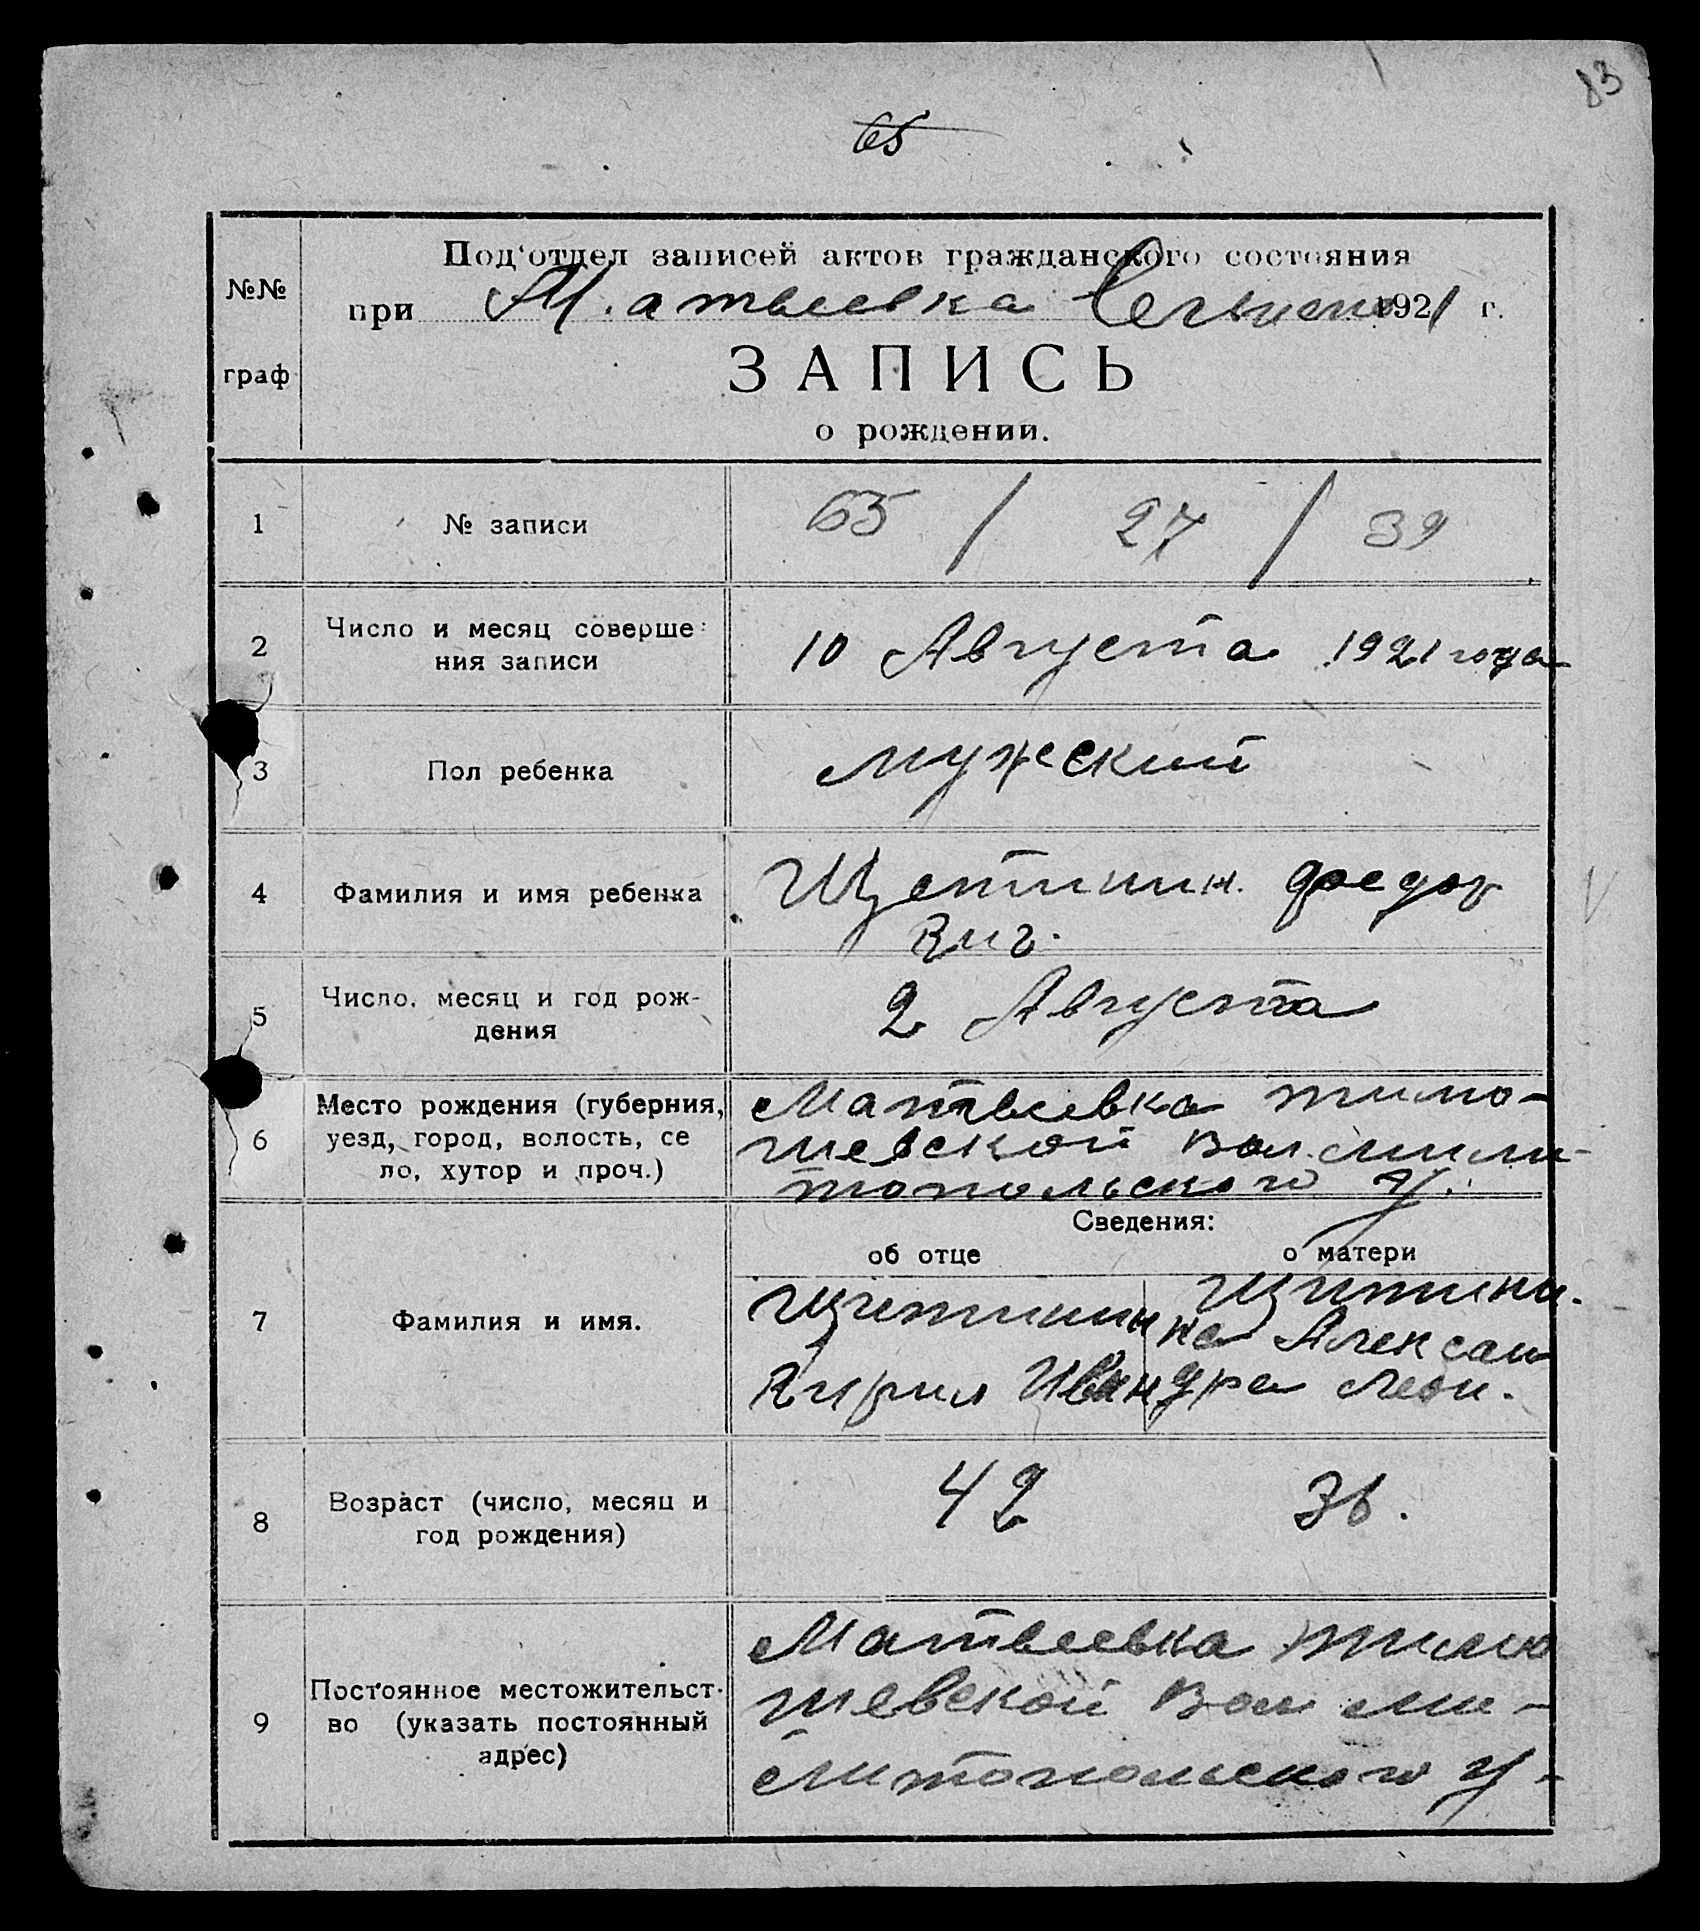 83
65
Под'отдел записей актов гражданского состояния
№№
при М.атвеевка 1921 г.
граф
ЗАПИСЬ
о рождении.
1 № записи 65 / 27 / 39
2 Число и месяц соверше-
ния записи 10 Августа 1921 года
3 Пол ребенка мужеский
4 Фамилия и имя ребенка Щетинин. Федор
5 Число, месяц и год рож-
дения 2 Августа
6 Место рождения (губерния,
уезд, город, волость, се
ло, хутор и проч.)
Матвеевка тимо-
шевской вол. мили-
топольского у.
Сведения:
об отце о матери
7 Фамилия и имя.
Щетинин
Кирил Иван
Щитини.
на Алексан
дра Леон.
8 Возраст (число, месяц и
год рождения) 42 36.
9 Постоянное местожительст-
во (указать постоянный
адрес)
Матвеевка тимо
шевской Вол ми-
литопольского у-